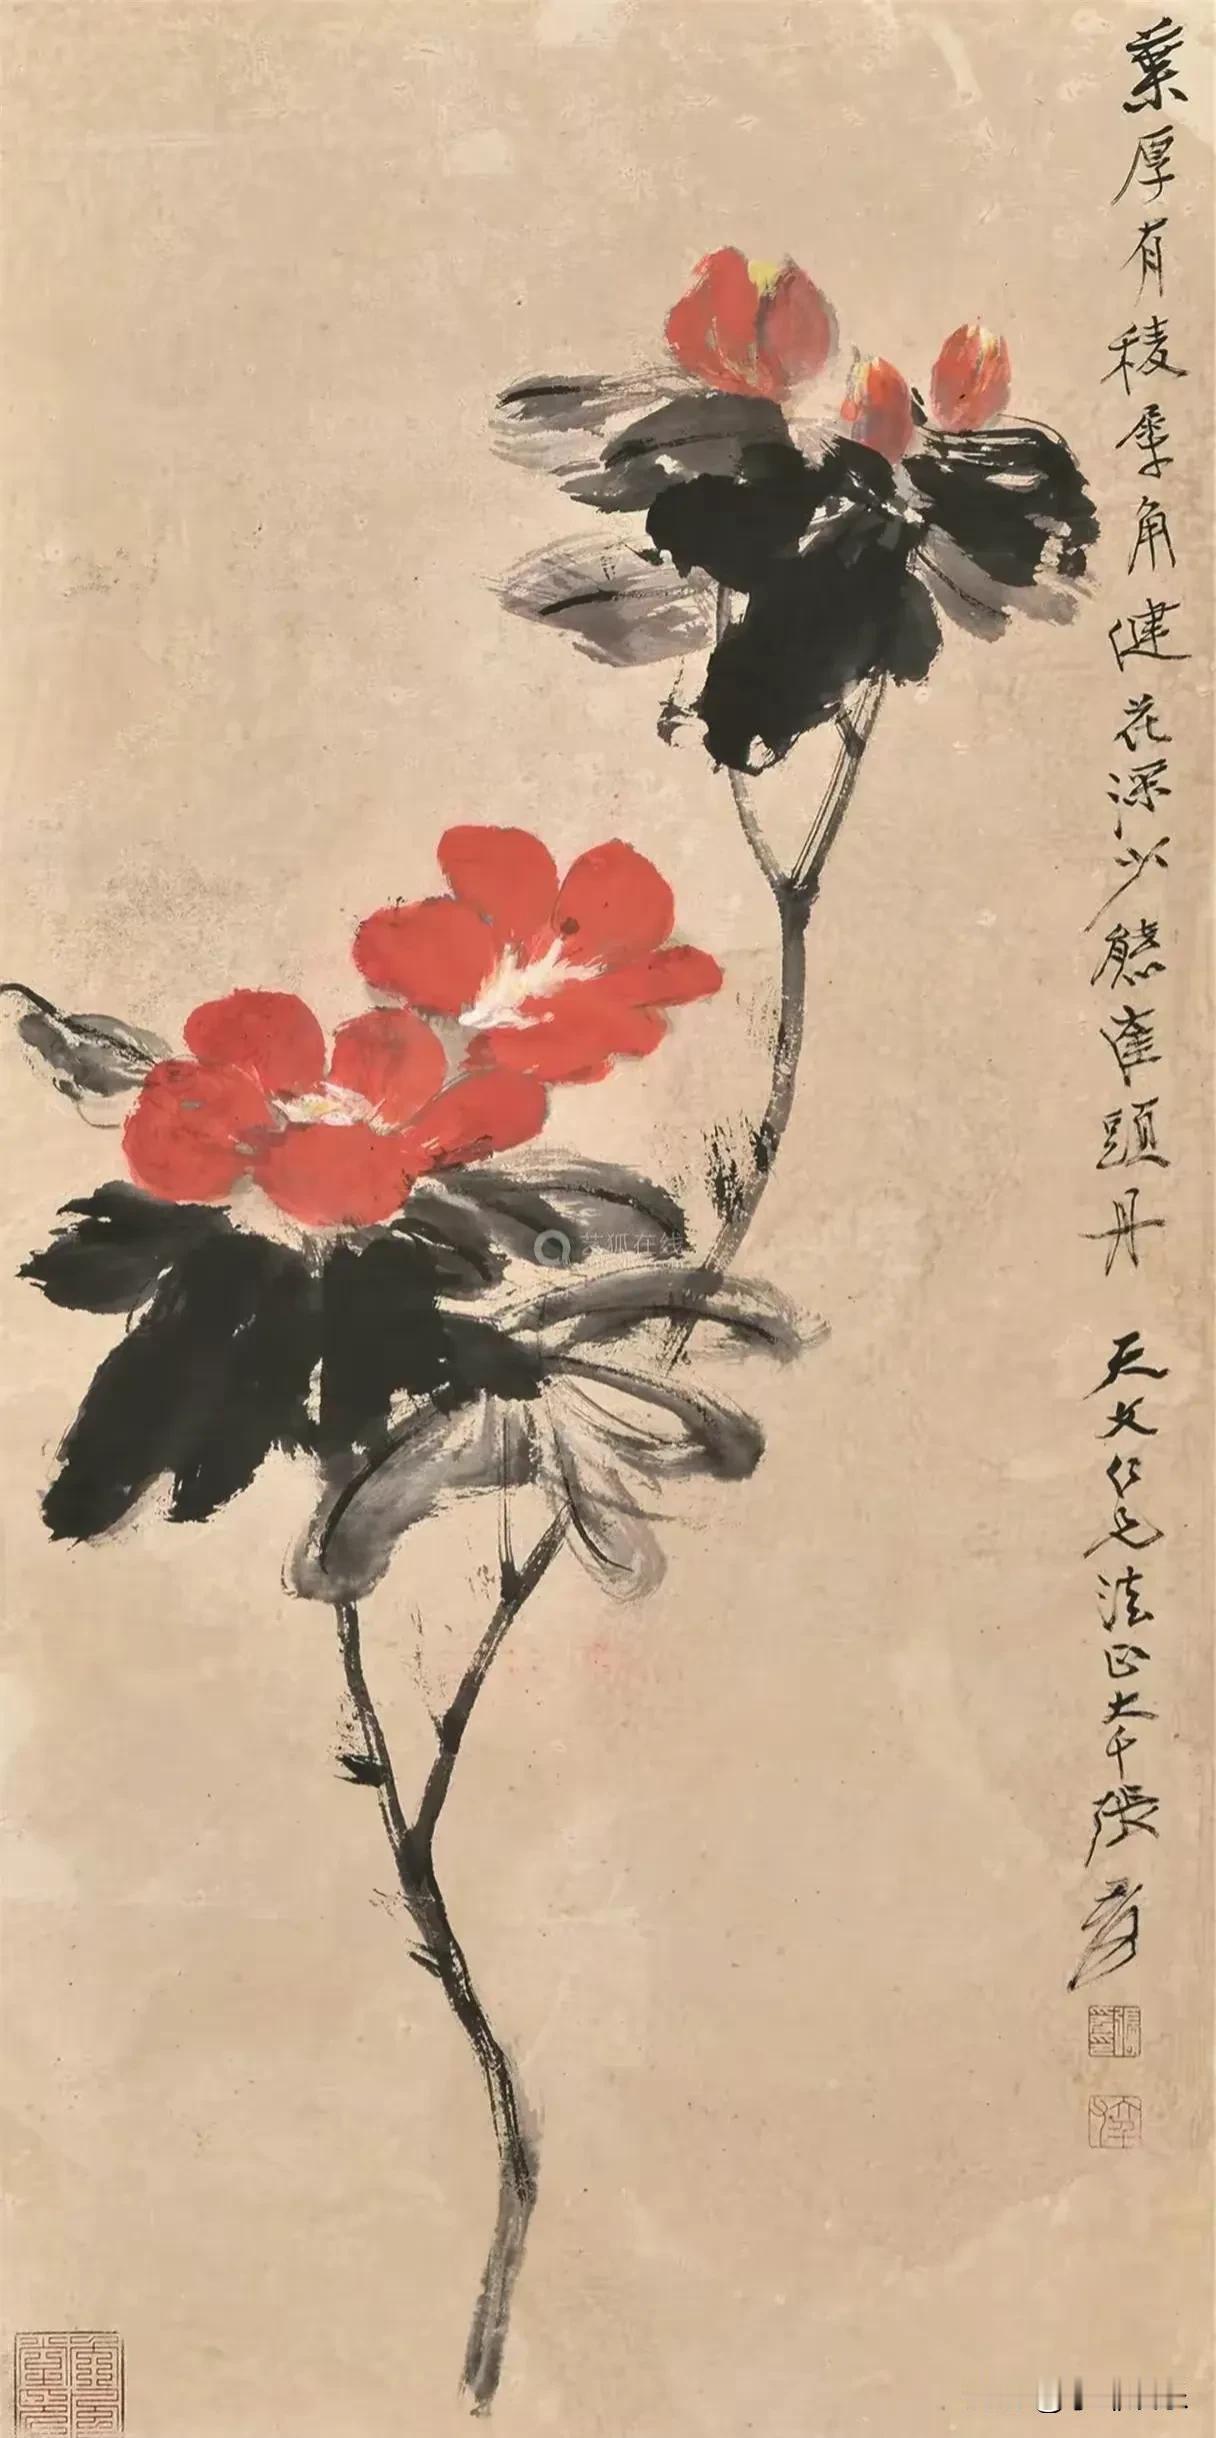 葉厚有稜犀角健花深少態鶴頭丹 天文仁兄法正大千張爰
艺狐在线